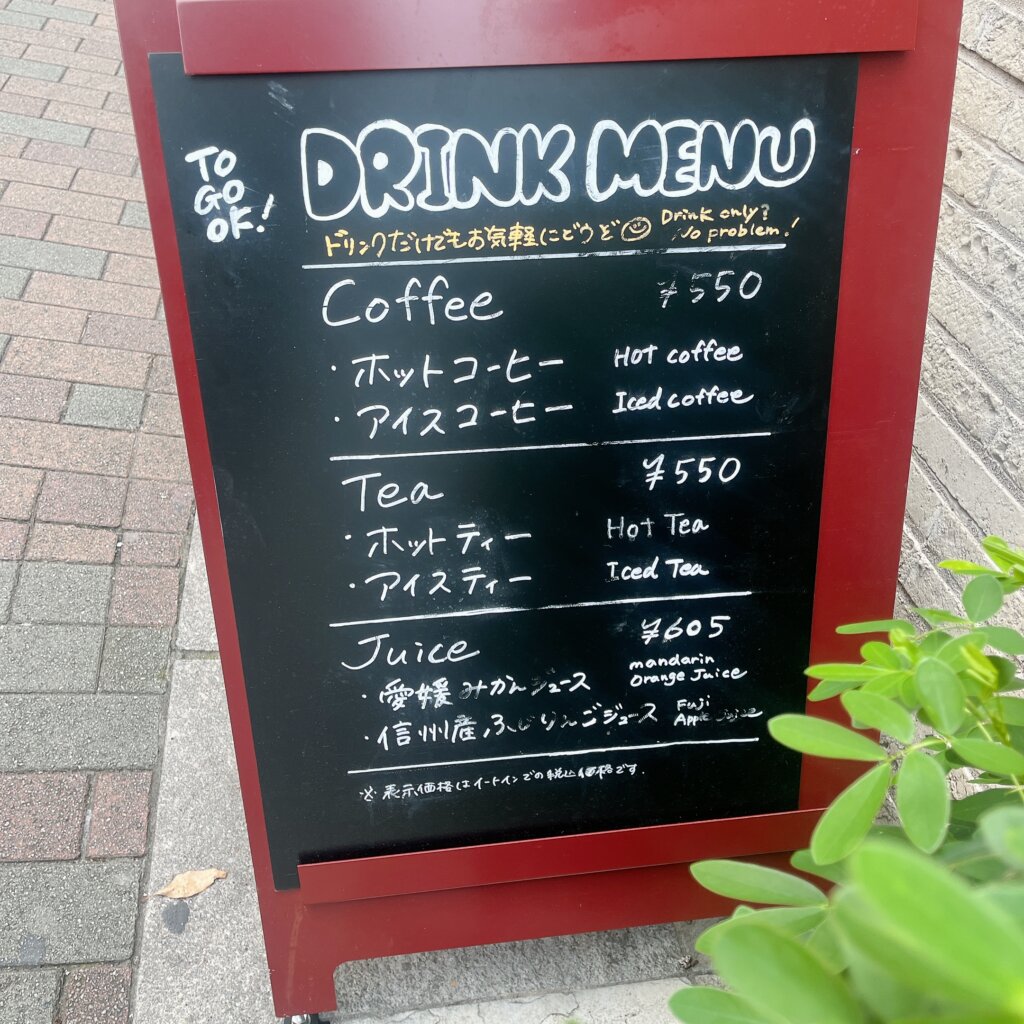 TO
GO
OK!
DRINK MENU
ドリンクだけでもお気軽にどうぞ Drink only?
No problem!
Coffee ¥550
・ホットコーヒー Hot coffee
・アイスコーヒー Iced coffee
Tea ¥550
・ホットティー Hot Tea
・アイスティー Iced Tea
Juice ¥605
・愛媛みかんジュース mandarin
Orange Juice
・信州産ふじりんごジュース Fuji
Apple Juice
※表示価格はイートインでの税込価格です.